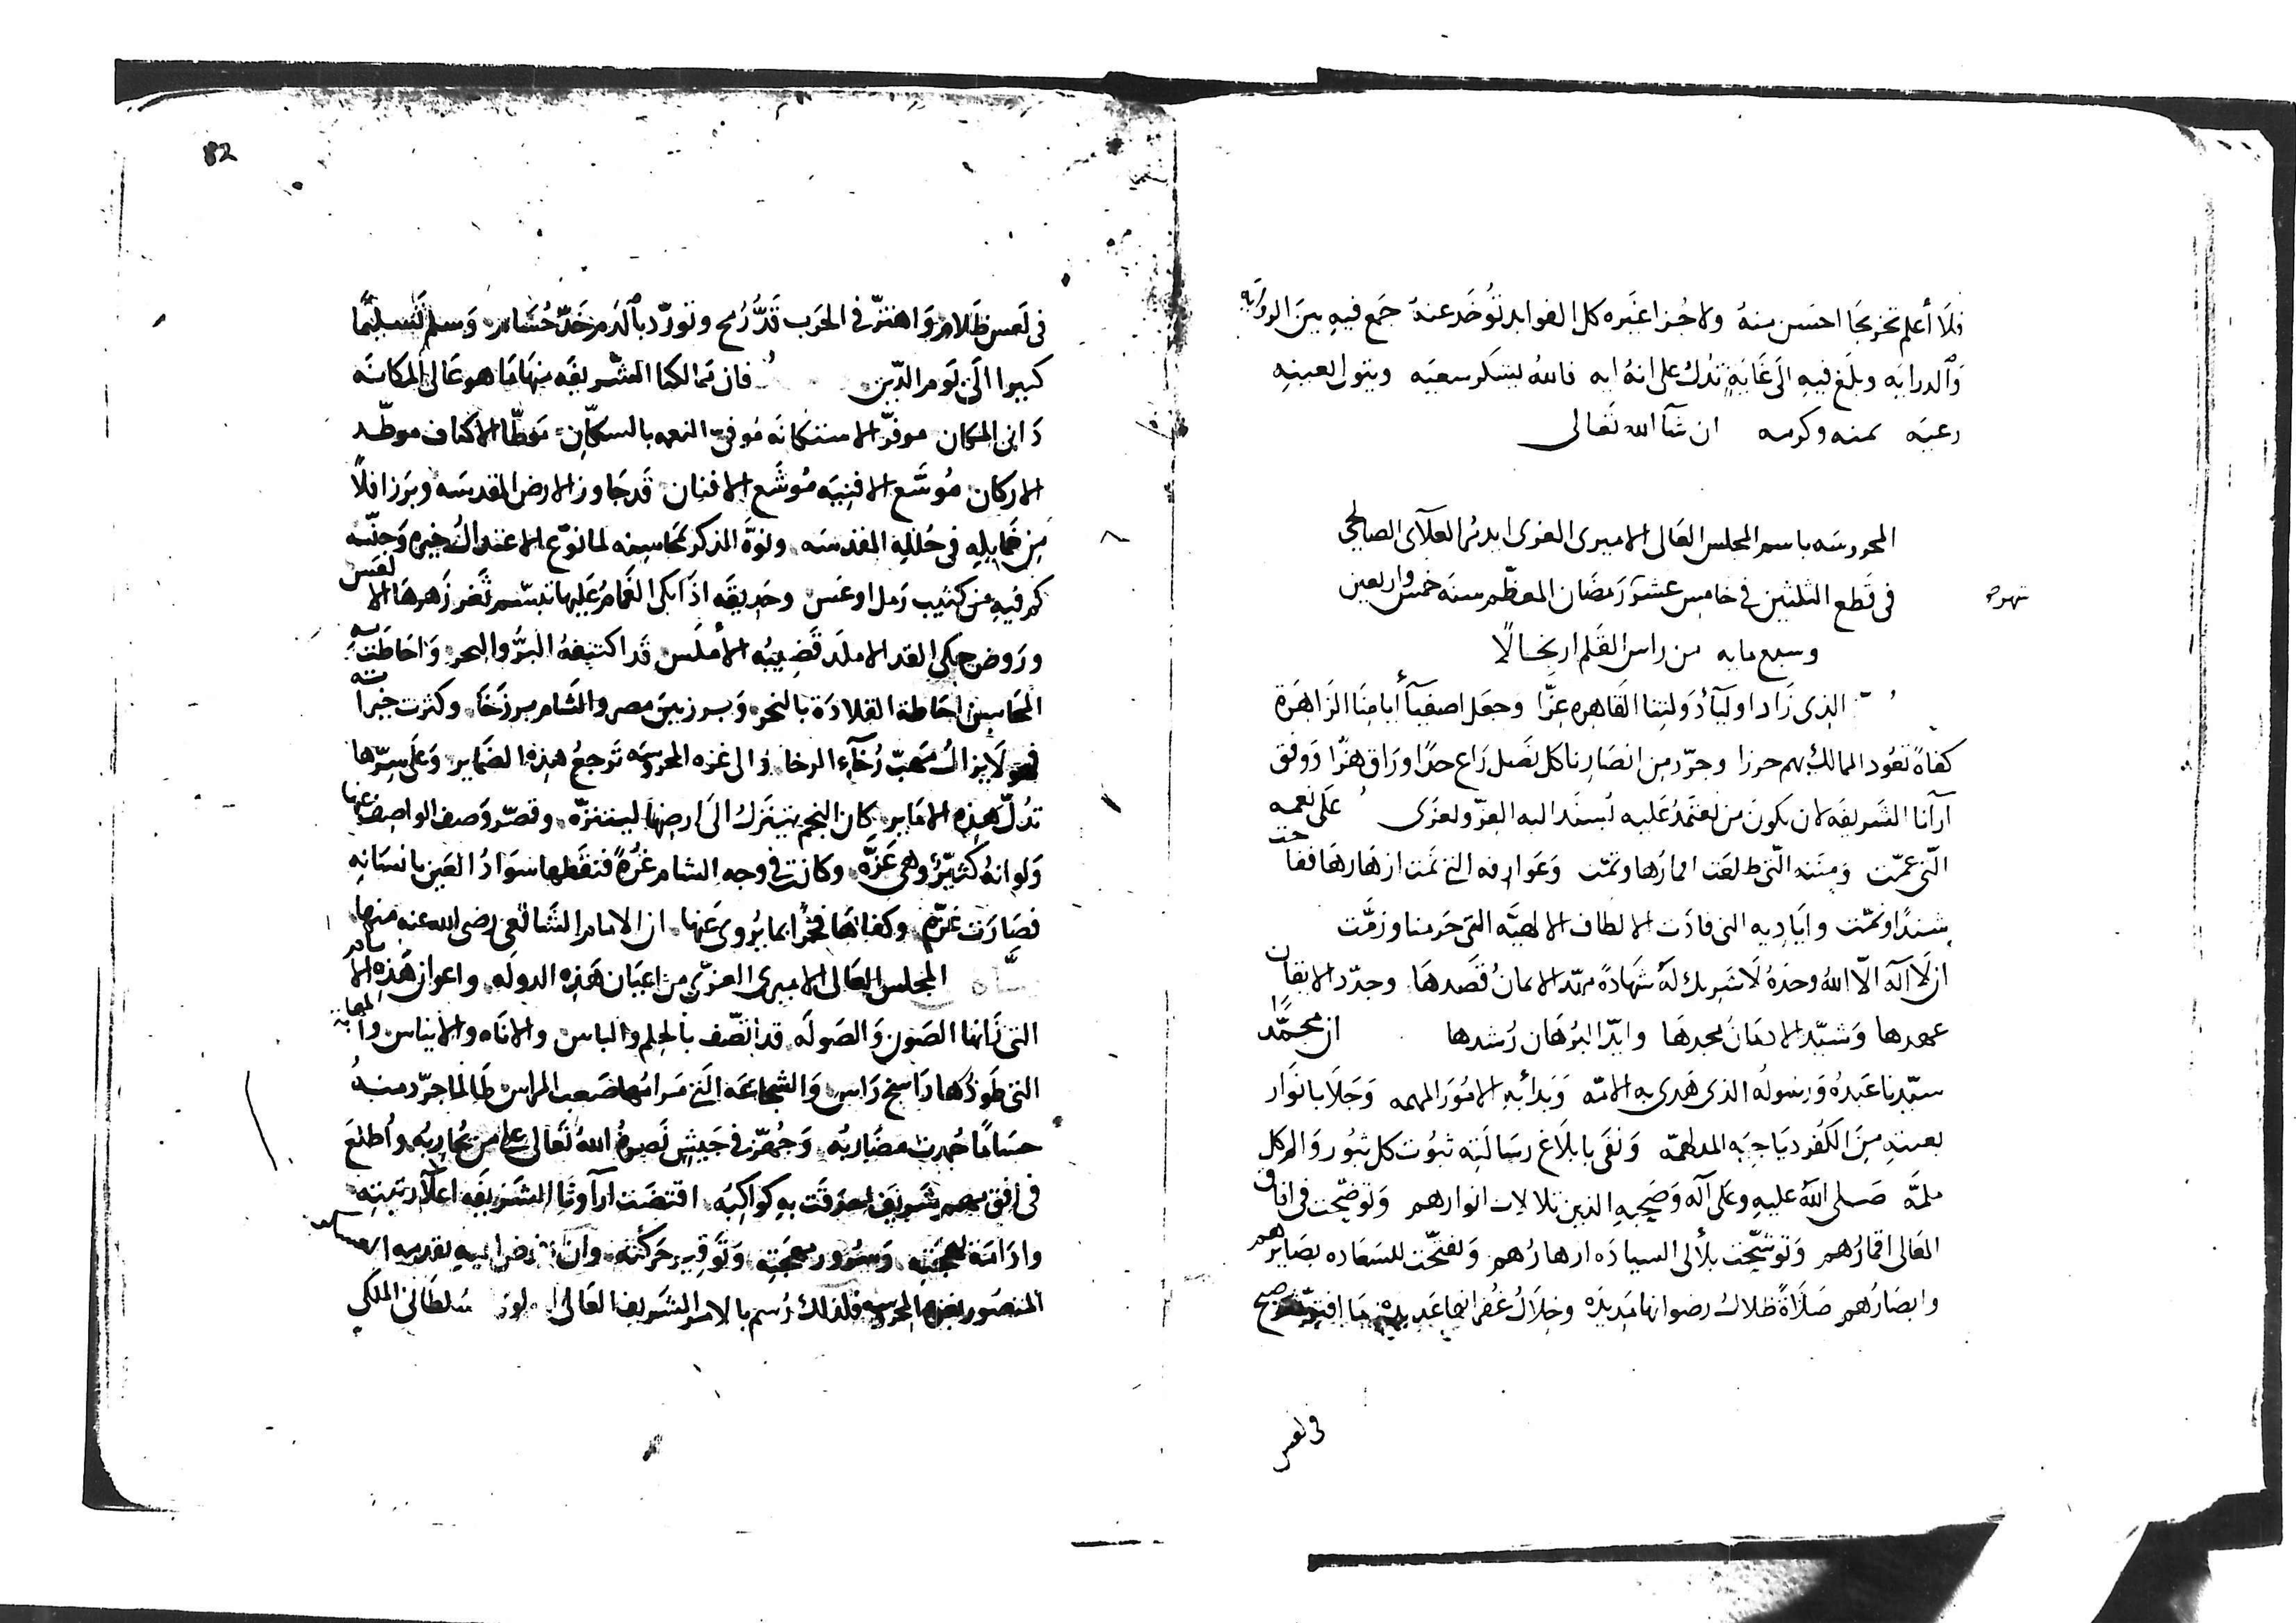 فلا أعلم تخريجا احسن منه ولا جزا غيره كل الفوايد تؤخذ عنه جمع فيه بين الروايه
والدرايه وبلغ فيه الى غاية تدل على انه ايه فالله يشكر سعيه ويتولى بعينه
رعيه بمنه وكرمه ان شآ الله تعالى
المحروسه باسم المجلس العالى الاميرى العزى ايدمر العلآى الصالحى
فى قطع الثلثين فى خامس عشر رمضان المعظم سنه خمس واربعين
شهره
وسبع مايه من راس القلم ارتجالا
الذى زاد اوليآ دولتنا القاهره عزا وجعل اصفيآ أيامنا الزاهرة
كفاة تعود الممالك بهم حرزا وجرد من انصارنا كل نصل راع حدا وراق هزا ووفق
ارآنا الشريفه لان يكون من نعتمد عليه يسند اليه العز ويعزى على نعمه
التى عمت ومننه التى طلعت اقمارها وتمت وعوارفه التى نمت ازهارها ففاحت
شذا ونمت واياديه التى قادت الالطاف الالهيه التى حرمنا وزمت
ان لا آله الا الله وحده لا شريك له شهادة مهد الايمان قصدها وجدد الايقان
عهدها وشيد الادمان مجدها وايد البرهان رشدها ان محمدا
سيدنا عبده ورسوله الذى هدى به الامه وبدأ به الامور المهمه وجلا بانوار
بعثته من الكفر دياجيه المدلهمه ونفى بابلاغ رسالته ثبوت كل ثبور والم كل
ملمه صلى الله عليه وعلى آله وصحبه الذين تلالات انوارهم وتوضحت فى افاق
المعالى اقمارهم وتوشحت بلألى السياده ازهارهم وتفتحت للسعاده بصايرهم
وابصارهم صلاة ظلال رضوانها مديده وخلال غفرانها عديده ما افتر صبح
فى لعس
82
فى لعس ظلام واهتز فى الحرب قد رمح وتورد بالدم خد حسام وسلم تسليما
كبيرا الى يوم الدين فان ممالكنا الشريفه منها ما هو عالى المكانه
دانى المكان موفر الاستكانه موفى النعمه بالسكان موطا الاكناف موطد
الاركان موسع الافنيه موشع الافنان قد جاوز الارض المقدسه وبرز رافلا
من خمايله فى حلله المقدسه ونوه الذكر محاسنه لما نوع الاعتدال خيره وجنسه
كم فيه من كثيب رمل اوعس وحديقه اذا بكى الغمام عليها تبسم ثغر زهرها الالعس
وروض حكى القد الاملد قضيبه الأملس قد اكتنفه البر والبحر واحاطت به
المحاسن احاطة القلادة بالنحر وبرز بين مصر والشام برزخا وكثرت خيراته
فهو لا يزال مهب رخآء الرخا والى غزه المحروسه ترجع هذه الضماير وعلى سرها
تدل هذه الاماير كان النجم تنزل الى ارضها ليتنزه وقصر وصف الواصف عنها
ولو انه كثير وهى عزه وكانت فى وجه الشام غرة فنقطها سواد العين بانسانه
فصارت غزه وكفاها فخرا بما يروى عنها ان الامام الشافعى رضى الله عنه منها
المجلس العالى الاميرى العزى من اعيان هذه الدوله واعوان هذه الايام
التى زانها الصون والصوله قد اتصف بالحلم والباس والاناه والايناس والمهابة
التى طودها راسخ راس والشجاعه التى مرامها صعب المراس طالما جرد منه
حساما حمدت مضاربه وجهز فى جيش نصره الله تعالى على من يحاربه واطلع
فى افق مهم شريف احدقت به كواكبه اقتضت آرآونا الشريفه اعلآ رتبته
وادامة بهجته وسرور مهجته وتوفير حركته وان نفوض اليه تقدمه العساكر
المنصوره بغزه المحروسه فلذلك رسم بالامر الشريف العالى السلطانى الملكى